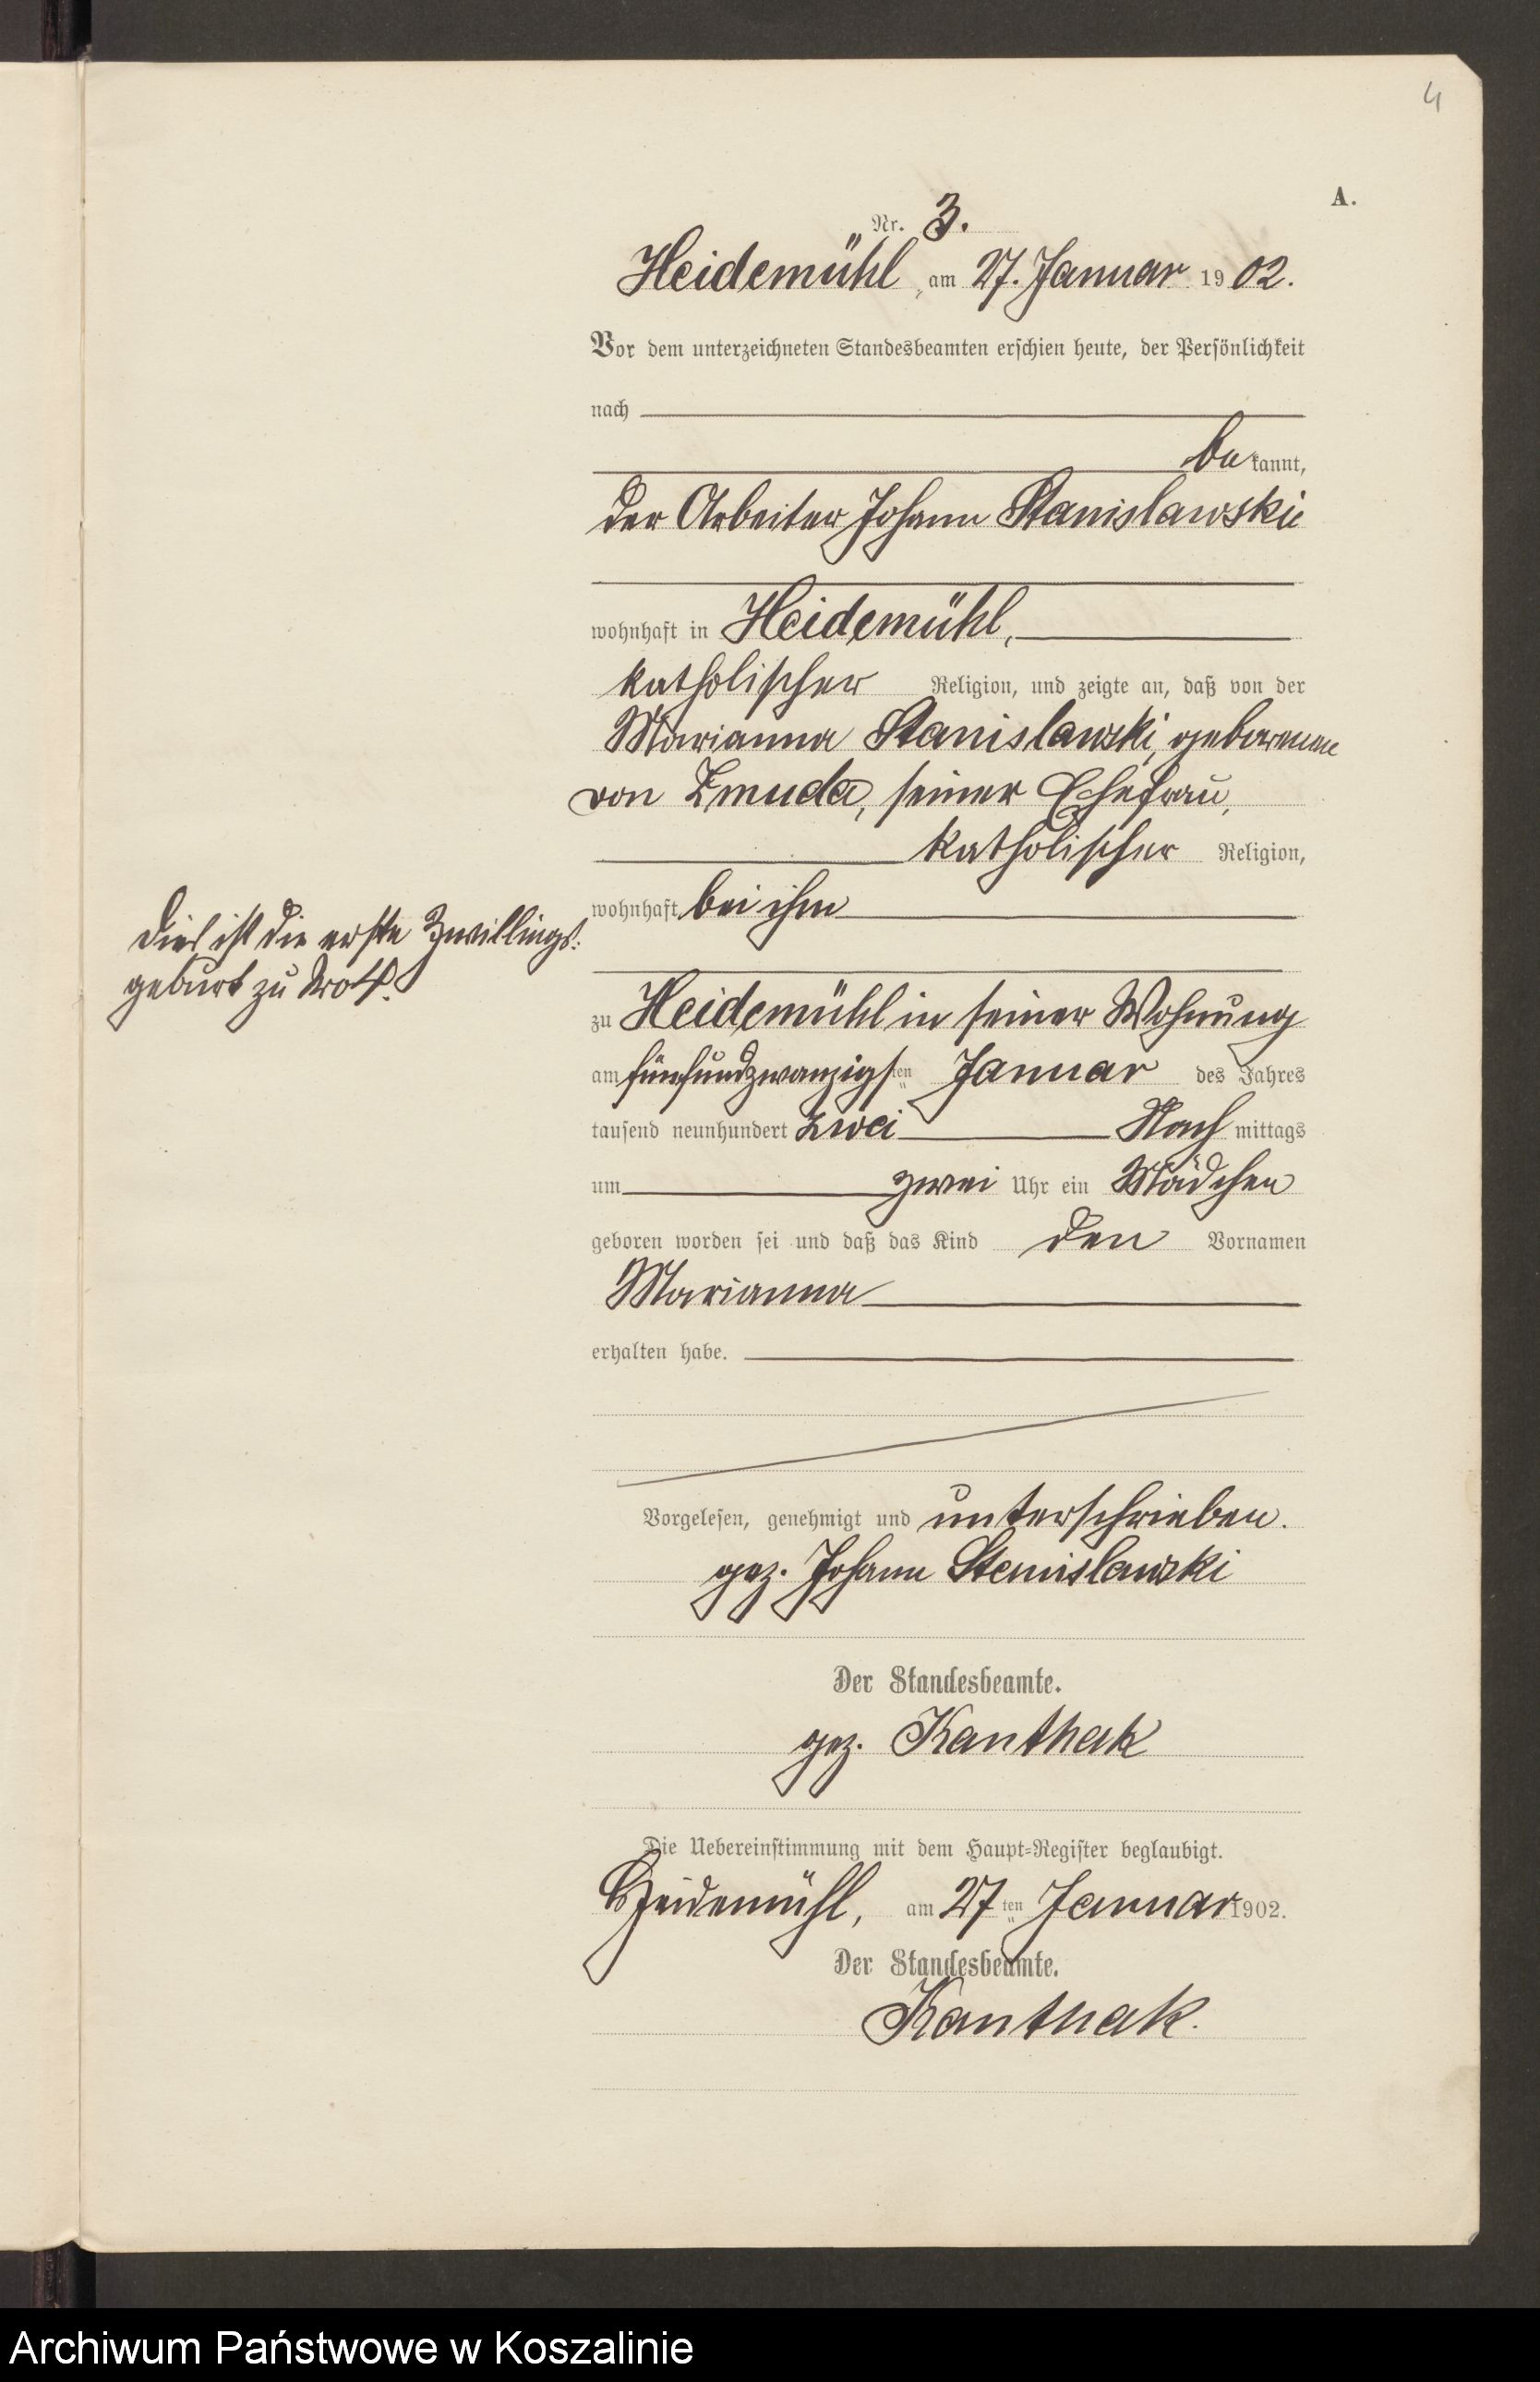 4
A.
Nr. 3.
Heidemühl, am 27. Januar 1902.
Vor dem unterzeichneten Standesbeamten erschien heute, der Persönlichkeit
nach
bekannt,
der Arbeiter Johann Stanislawski
wohnhaft in Heidemühl,
katholischer Religion, und zeigte an, daß von der
Marianna Stanislawski, geborenen
von Zmuda, seiner Ehefrau,
katholischer Religion,
wohnhaft bei ihm
Dies ist die erste Zwillings-
geburt zu
zu Heidemühl in seiner Wohnung
am fünfundzwanzigsten Januar des Jahres
tausend neunhundert zwei Nachmittags
um zwei Uhr ein Mädchen
geboren worden sei und daß das Kind den Vornamen
Marianna
erhalten habe.
Vorgelesen, genehmigt und unterschrieben.
gez. Johann Stanislawski
Der Standesbeamte.
gez. Kanthak
Die Uebereinstimmung mit dem Haupt-Register beglaubigt.
Heidemühl, am 27ten Januar 1902.
Der Standesbeamte.
Kanthak.
Archiwum Państwowe w Koszalinie